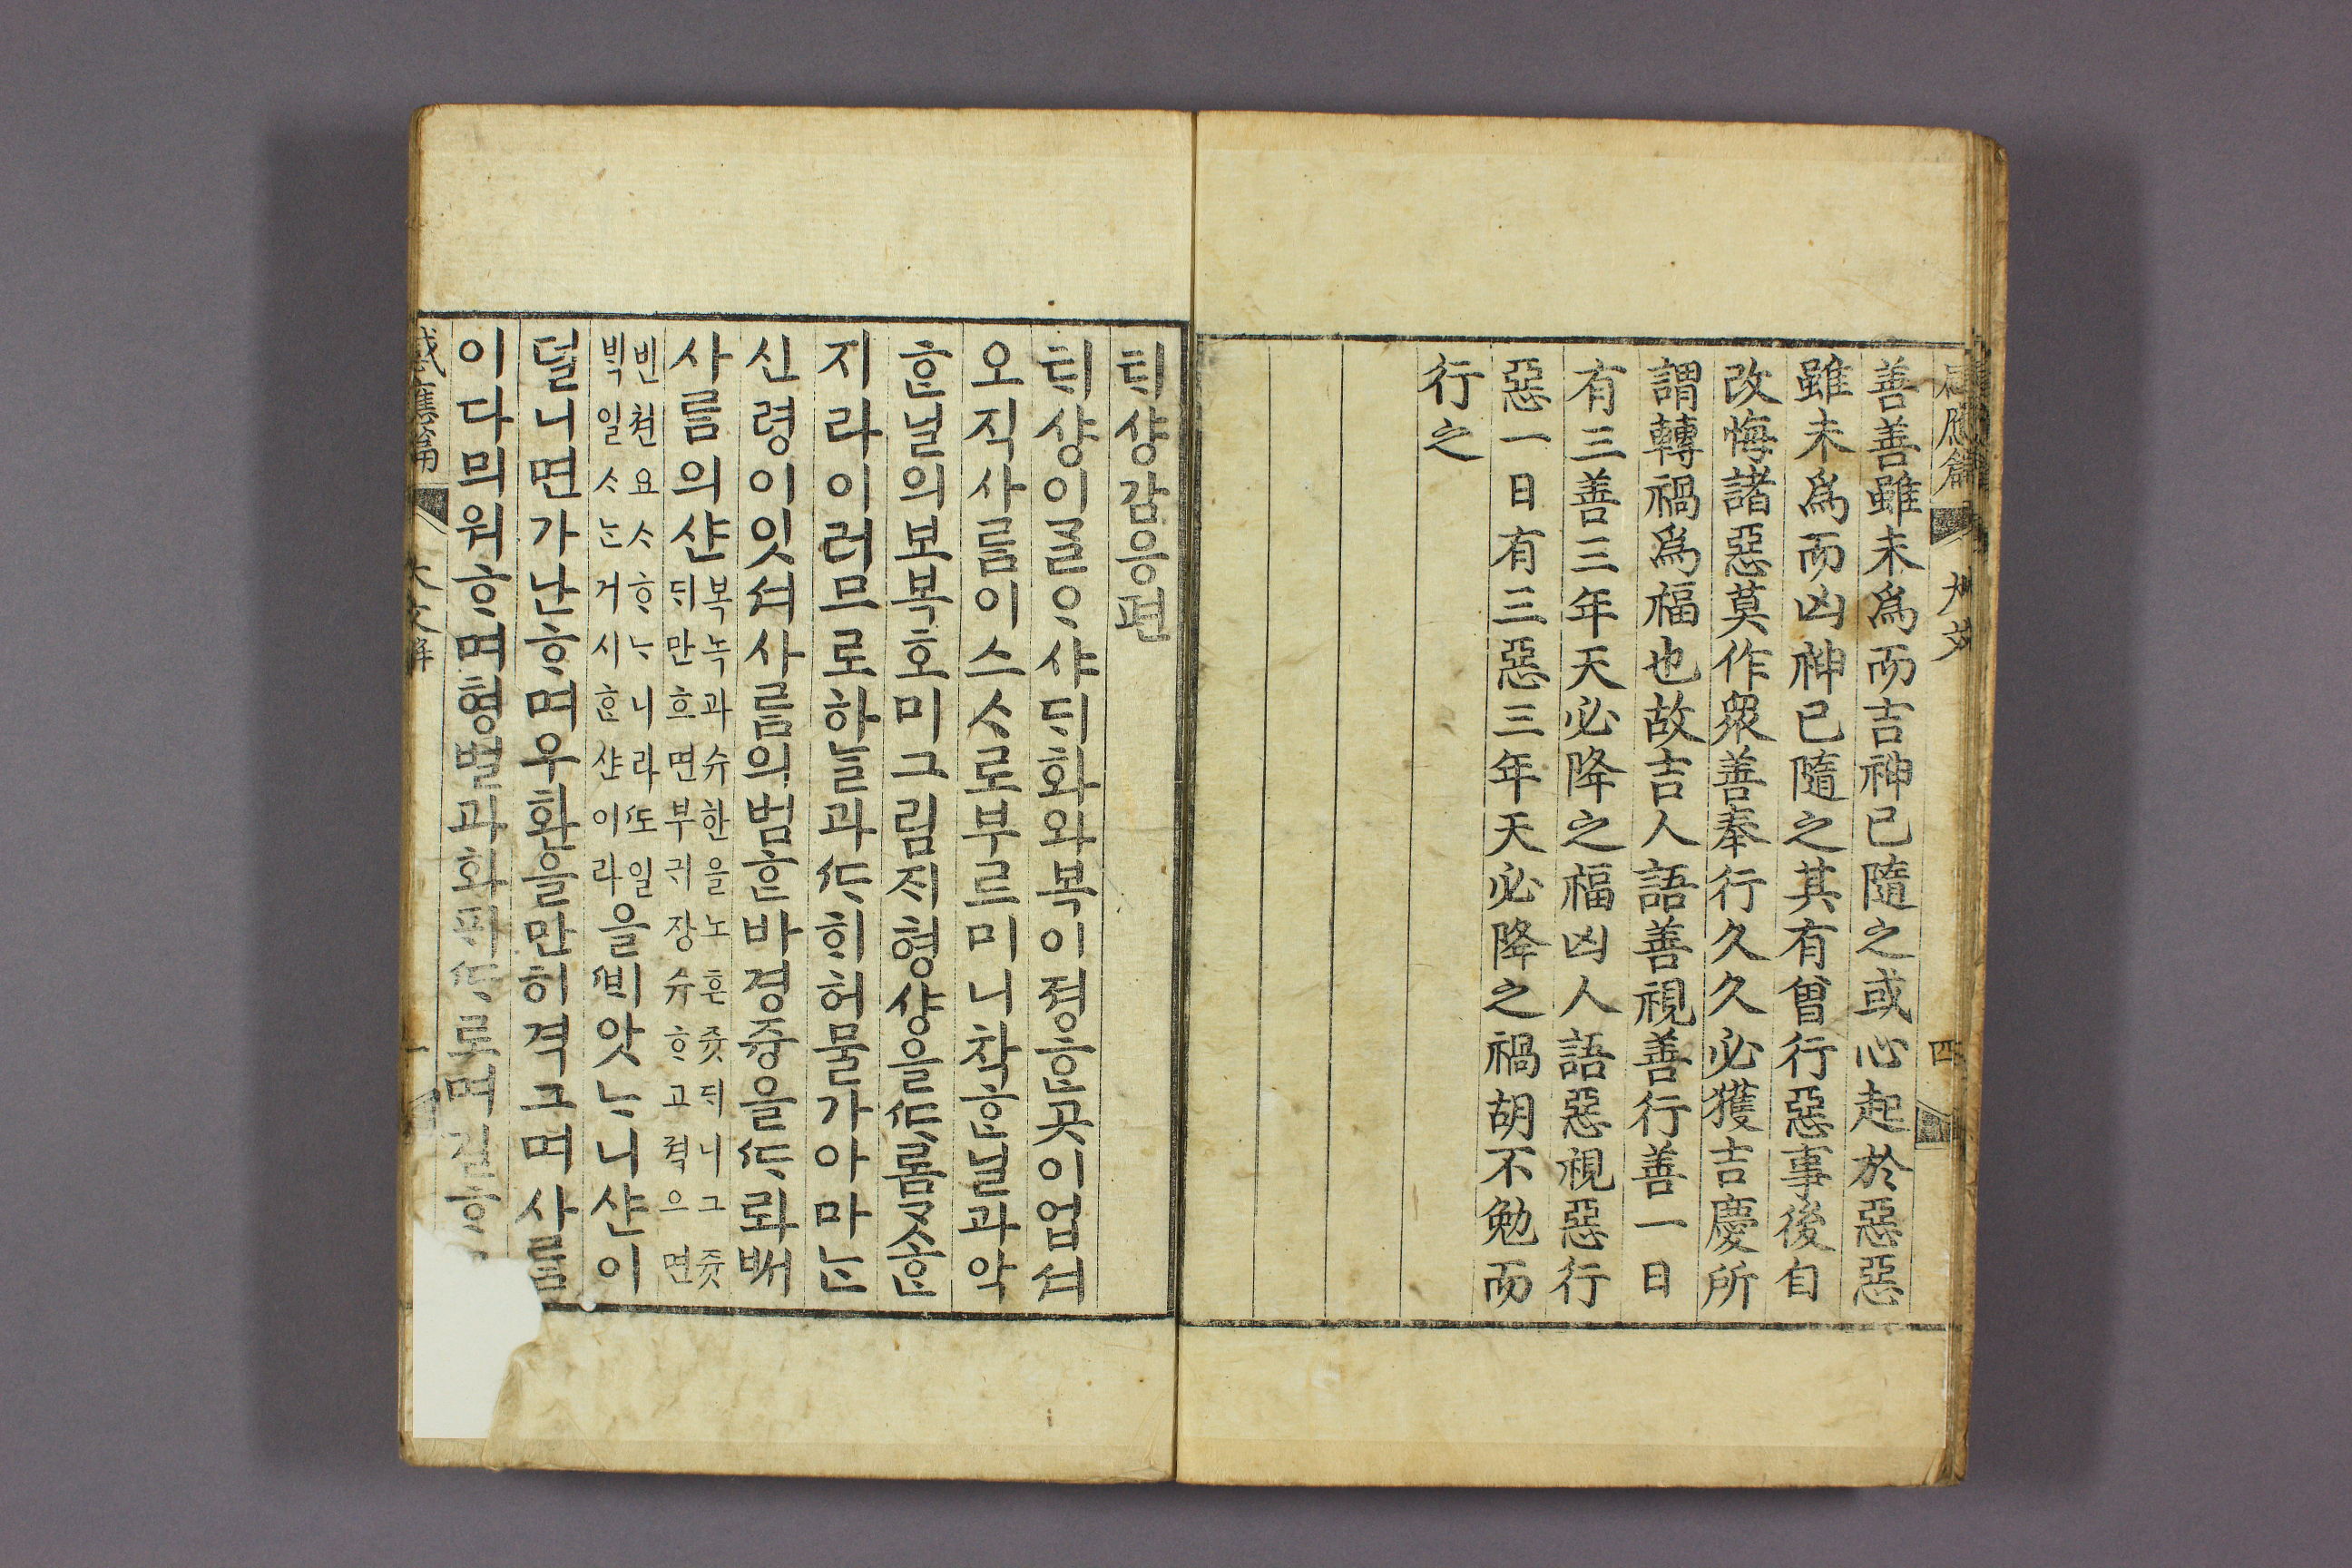 感應篇 大文 四
善善雖未爲而吉神已隨之或心起於惡惡
雖未爲而凶神已隨之其有曾行惡事後自
改悔諸惡莫作衆善奉行久久必獲吉慶所
謂轉禍爲福也故吉人語善視善行善一日
有三善三年天必降之福凶人語惡視惡行
惡一日有三惡三年天必降之禍胡不勉而
行之
ᄐᆡ샹감응편
ᄐᆡ샹이ᄀᆞᆯᄋᆞ샤ᄃᆡ화와복이졍ᄒᆞᆫ곳이업셔
오직사ᄅᆞᆷ이스ᄉᆞ로부르미니착ᄒᆞᆫ닐과악
ᄒᆞᆫ닐의보복호미그림ᄌᆡ형샹을ᄯᆞ롬ᄀᆞᆺᄒᆞᆫ
지라이러므로하ᄂᆞᆯ과ᄯᆞᄒᆡ허물가아마ᄂᆞᆫ
신령이잇셔사ᄅᆞᆷ의범ᄒᆞᆫ바경즁을ᄯᆞ롸ᄡᅥ
사ᄅᆞᆷ의샨
복녹과슈한을노흔쥿ᄃᆡ니그쥿
ᄃᆡ만흐면부귀장슈ᄒᆞ고젹으면
빈쳔요ᄉᆞᄒᆞᄂᆞ니라ᄯᅩ일
ᄇᆡᆨ일ᄉᆞᄂᆞᆫ거시ᄒᆞᆫ샨이라
을ᄲᆡ앗ᄂᆞ니샨이
덜니면가난ᄒᆞ며우환을만히격그며사ᄅᆞᆷ
이다믜워ᄒᆞ며형벌과화ᄑᆡᄯᆞ로며길ᄒᆞ
感應篇 大文解 一